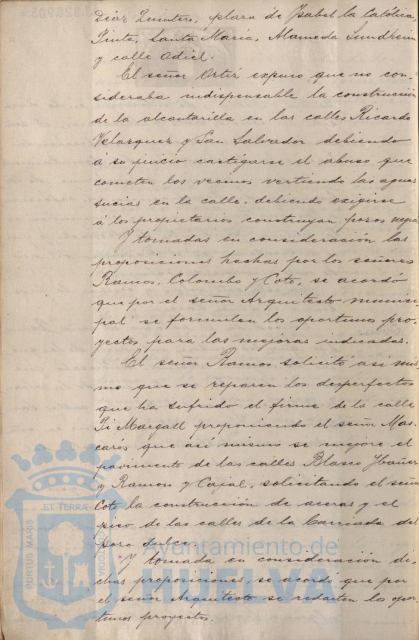 Diaz Quintero, plaza de Ysabel la Católica,
Tinte, Santa Maria, Alameda Sundheim
y calle Odiel.
El señor Ortiz expuso que no con-
sideraba indispensable la construcción
de la alcantarilla en las calles Ricardo
Velazquez y San Salvador debiendo
á su juicio castigarse el abuso que
cometen los vecinos vertiendo las aguas
sucias en la calle, debiendo exigirse
á los propietarios construyan pozos negros
Y tomadas en consideración las
proposiciones hechas por los señores
Ramos, Colombo y Coto, se acordó
que por el señor Arquitecto munici-
pal se formulen los oportunos pro-
yectos para las mejoras indicadas.
El señor Ramos solicitó asi mis-
mo que se reparen los desperfectos
que ha sufrido el firme de la calle
Pi Margall proponiendo el señor Mas-
carós que asi mismo se mejore el
pavimento de las calles Blasco Ybañez
y Ramon y Cajal, solicitando el señor
Coto la construcción de aceras y el
piso de las calles de la Barriada del
Pozo Dulce.
Y tomada en consideración di-
chas proposiciones, se acordó que por
el señor Arquitecto se redacten los opor-
tunos proyectos.
PORTUS MARIS
ET TERRÆ
Ayuntamiento de